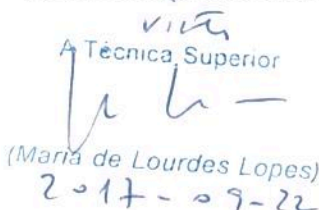 Visto
A Técnica Superior
(Maria de Lourdes Lopes)
2017-09-22